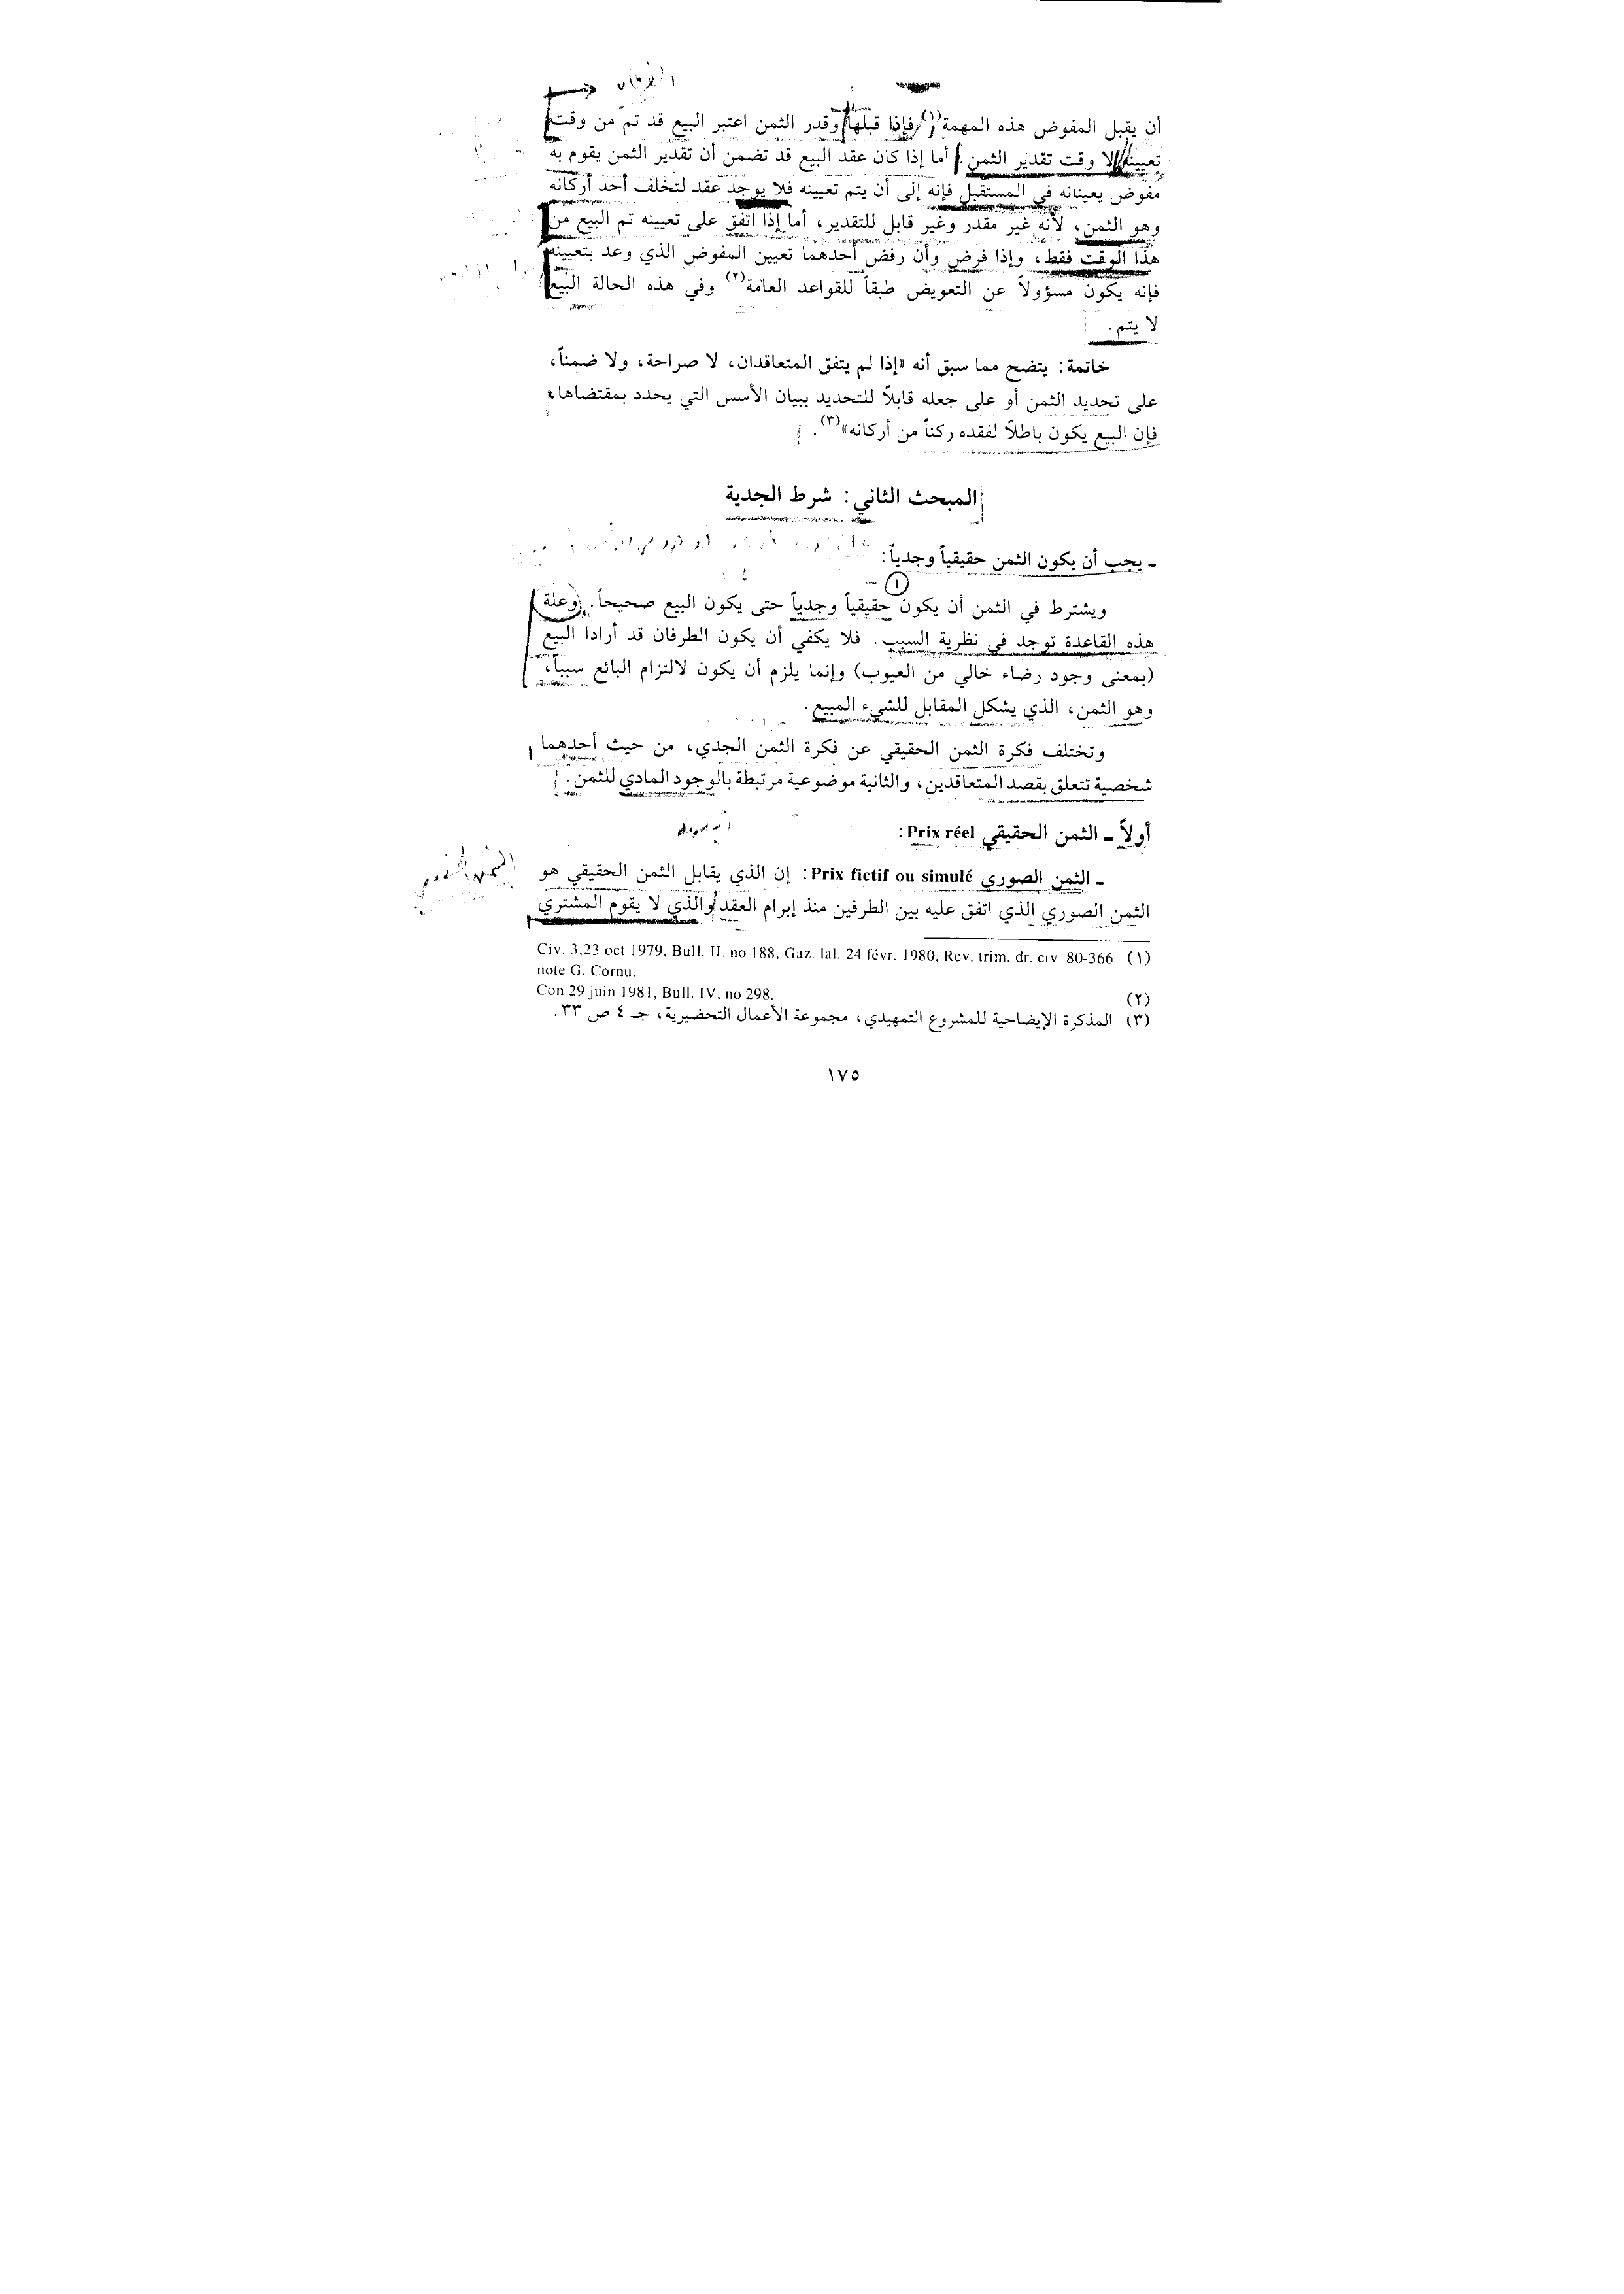 أن يقبل المفوض هذه المهمة(١) فإذا قبلها وقدر الثمن اعتبر البيع قد تم من وقت
تعيينه لا وقت تقدير الثمن. أما إذا كان عقد البيع قد تضمن أن تقدير الثمن يقوم به
مفوض يعينانه في المستقبل فإنه إلى أن يتم تعيينه فلا يوجد عقد لتخلف أحد أركانه
وهو الثمن، لأنه غير مقدر وغير قابل للتقدير، أما إذا اتفق على تعيينه تم البيع من
هذا الوقت فقط، وإذا فرض وأن رفض أحدهما تعيين المفوض الذي وعد بتعيينه
فإنه يكون مسؤولاً عن التعويض طبقاً للقواعد العامة(٢) وفي هذه الحالة البيع
لا يتم.
خاتمة: يتضح مما سبق أنه «إذا لم يتفق المتعاقدان، لا صراحة، ولا ضمناً،
على تحديد الثمن أو على جعله قابلاً للتحديد ببيان الأسس التي يحدد بمقتضاها،
فإن البيع يكون باطلاً لفقده ركناً من أركانه»(٣).
المبحث الثاني: شرط الجدية
ـ يجب أن يكون الثمن حقيقياً وجدياً:
١
ويشترط في الثمن أن يكون حقيقياً وجدياً حتى يكون البيع صحيحاً. وعلة
هذه القاعدة توجد في نظرية السبب. فلا يكفي أن يكون الطرفان قد أرادا البيع
(بمعنى وجود رضاء خالي من العيوب) وإنما يلزم أن يكون لالتزام البائع سبباً،
وهو الثمن، الذي يشكل المقابل للشيء المبيع.
وتختلف فكرة الثمن الحقيقي عن فكرة الثمن الجدي، من حيث أحدهما
شخصية تتعلق بقصد المتعاقدين، والثانية موضوعية مرتبطة بالوجود المادي للثمن.
أولاً ـ الثمن الحقيقي Prix réel:
ـ الثمن الصوري Prix fictif ou simulé: إن الذي يقابل الثمن الحقيقي هو
الثمن الصوري الذي اتفق عليه بين الطرفين منذ إبرام العقد والذي لا يقوم المشتري
(١) Civ. 3,23 oct 1979, Bull. II. no 188, Gaz. lal. 24 févr. 1980, Rev. trim. dr. civ. 80-366
note G. Cornu.
(٢) Con 29 juin 1981, Bull. IV, no 298.
(٣) المذكرة الإيضاحية للمشروع التمهيدي، مجموعة الأعمال التحضيرية، جـ ٤ ص ٣٣.
١٧٥